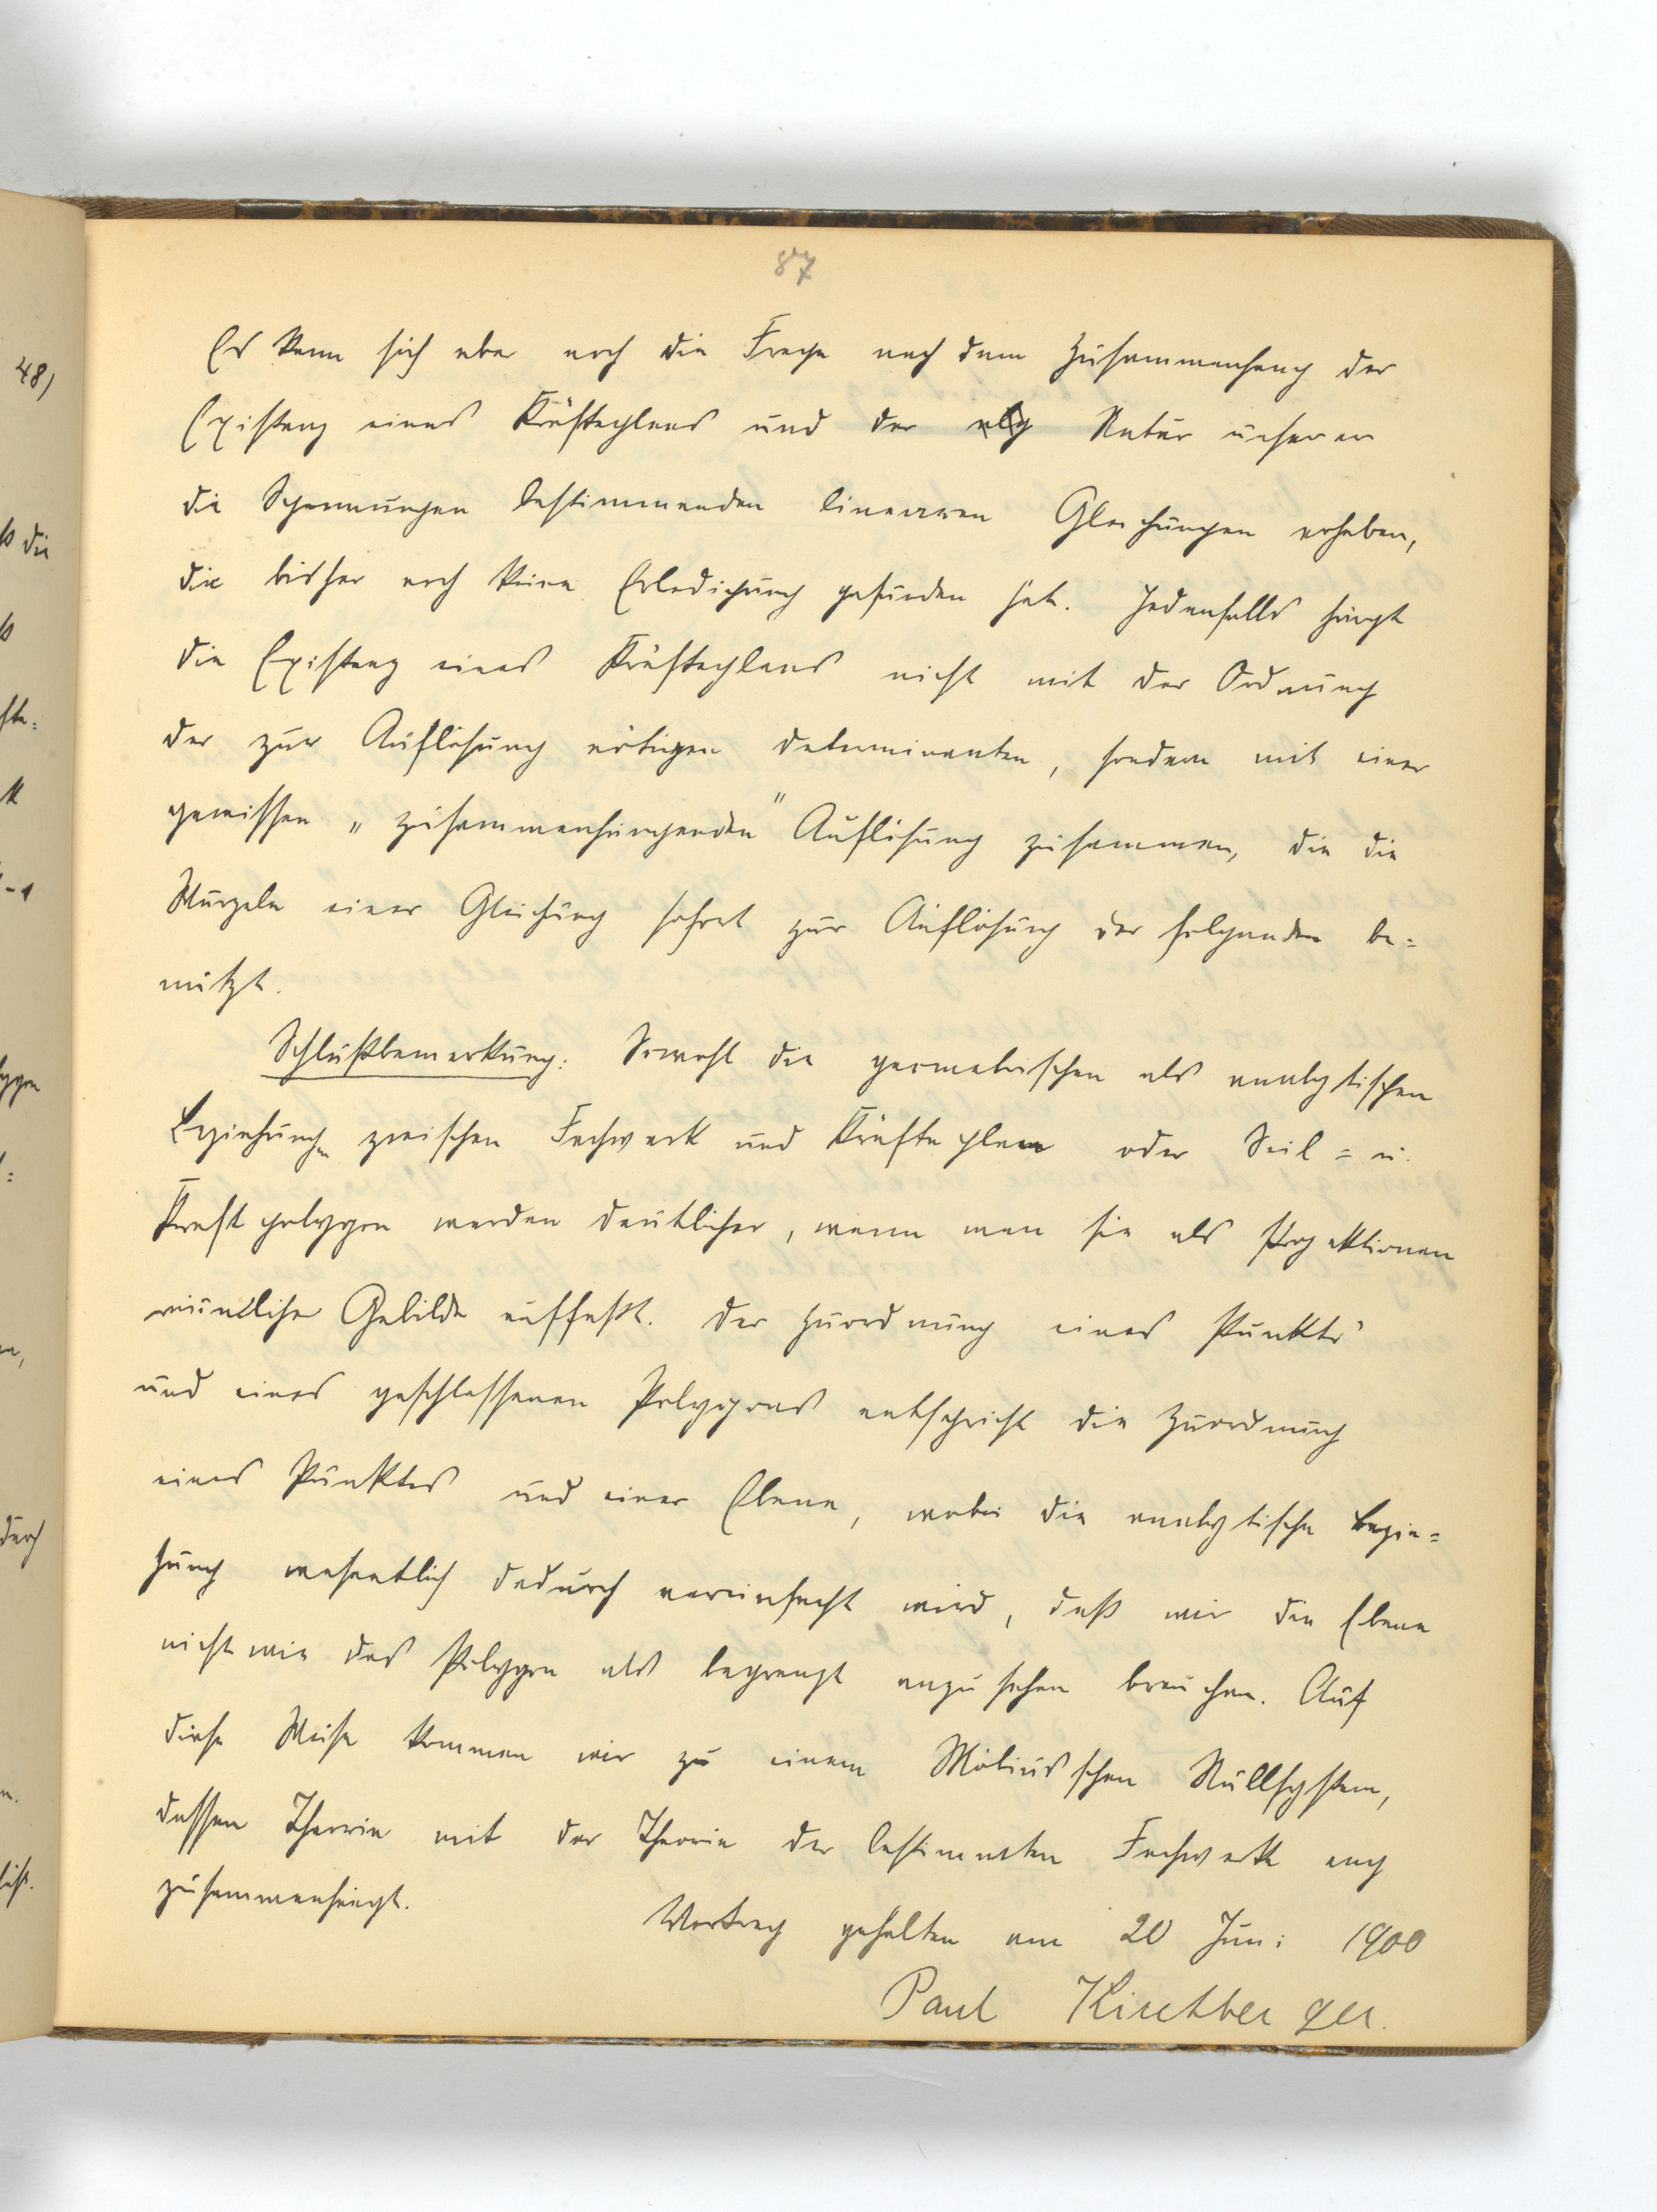 87
Es kann sich aber noch die Frage nach dem Zusammenhang der
Existenz eines Kräfteplans und der Natur unserer
die Spannungen bestimmenden linearen Gleichungen erheben,
die bisher noch keine Erledigung gefunden hat. Jedenfalls hängt
die Existenz eines Kräfteplans nicht mit der Ordnung
der zur Auflösung nötigen Determinanten, sondern mit einer
gewissen „zusammenhängenden" Auflösung zusammen, die die
Wurzeln einer Gleichung sofort zur Auflösung der folgenden be=
nützt.
Schlußbemerkung: Sowohl die geometrischen als analytischen
Beziehungen zwischen Fachwerk und Kräfteplan oder Seil= u.
Kraftpolygon werden deutlicher, wenn man sie als Projektionen
räumlicher Gebilde auffaßt. Der Zuordnung eines Punkts
und eines geschlossenen Polygons entspricht die Zuordnung
eines Punktes und einer Ebene, wobei die analytische Bezie=
hung wesentlich dadurch vereinfacht wird, daß wir die Ebene
nicht wie das Polygon als begrenzt anzusehen brauchen. Auf
diese Weise kommen wir zu einem Möbiusschen Nullsystem,
dessen Theorie mit der Theorie der bestimmten Fachwerke eng
zusammenhängt.
Vortrag gehalten am 20 Juni 1900
Paul Kirchberger.
48)
ß die
durch